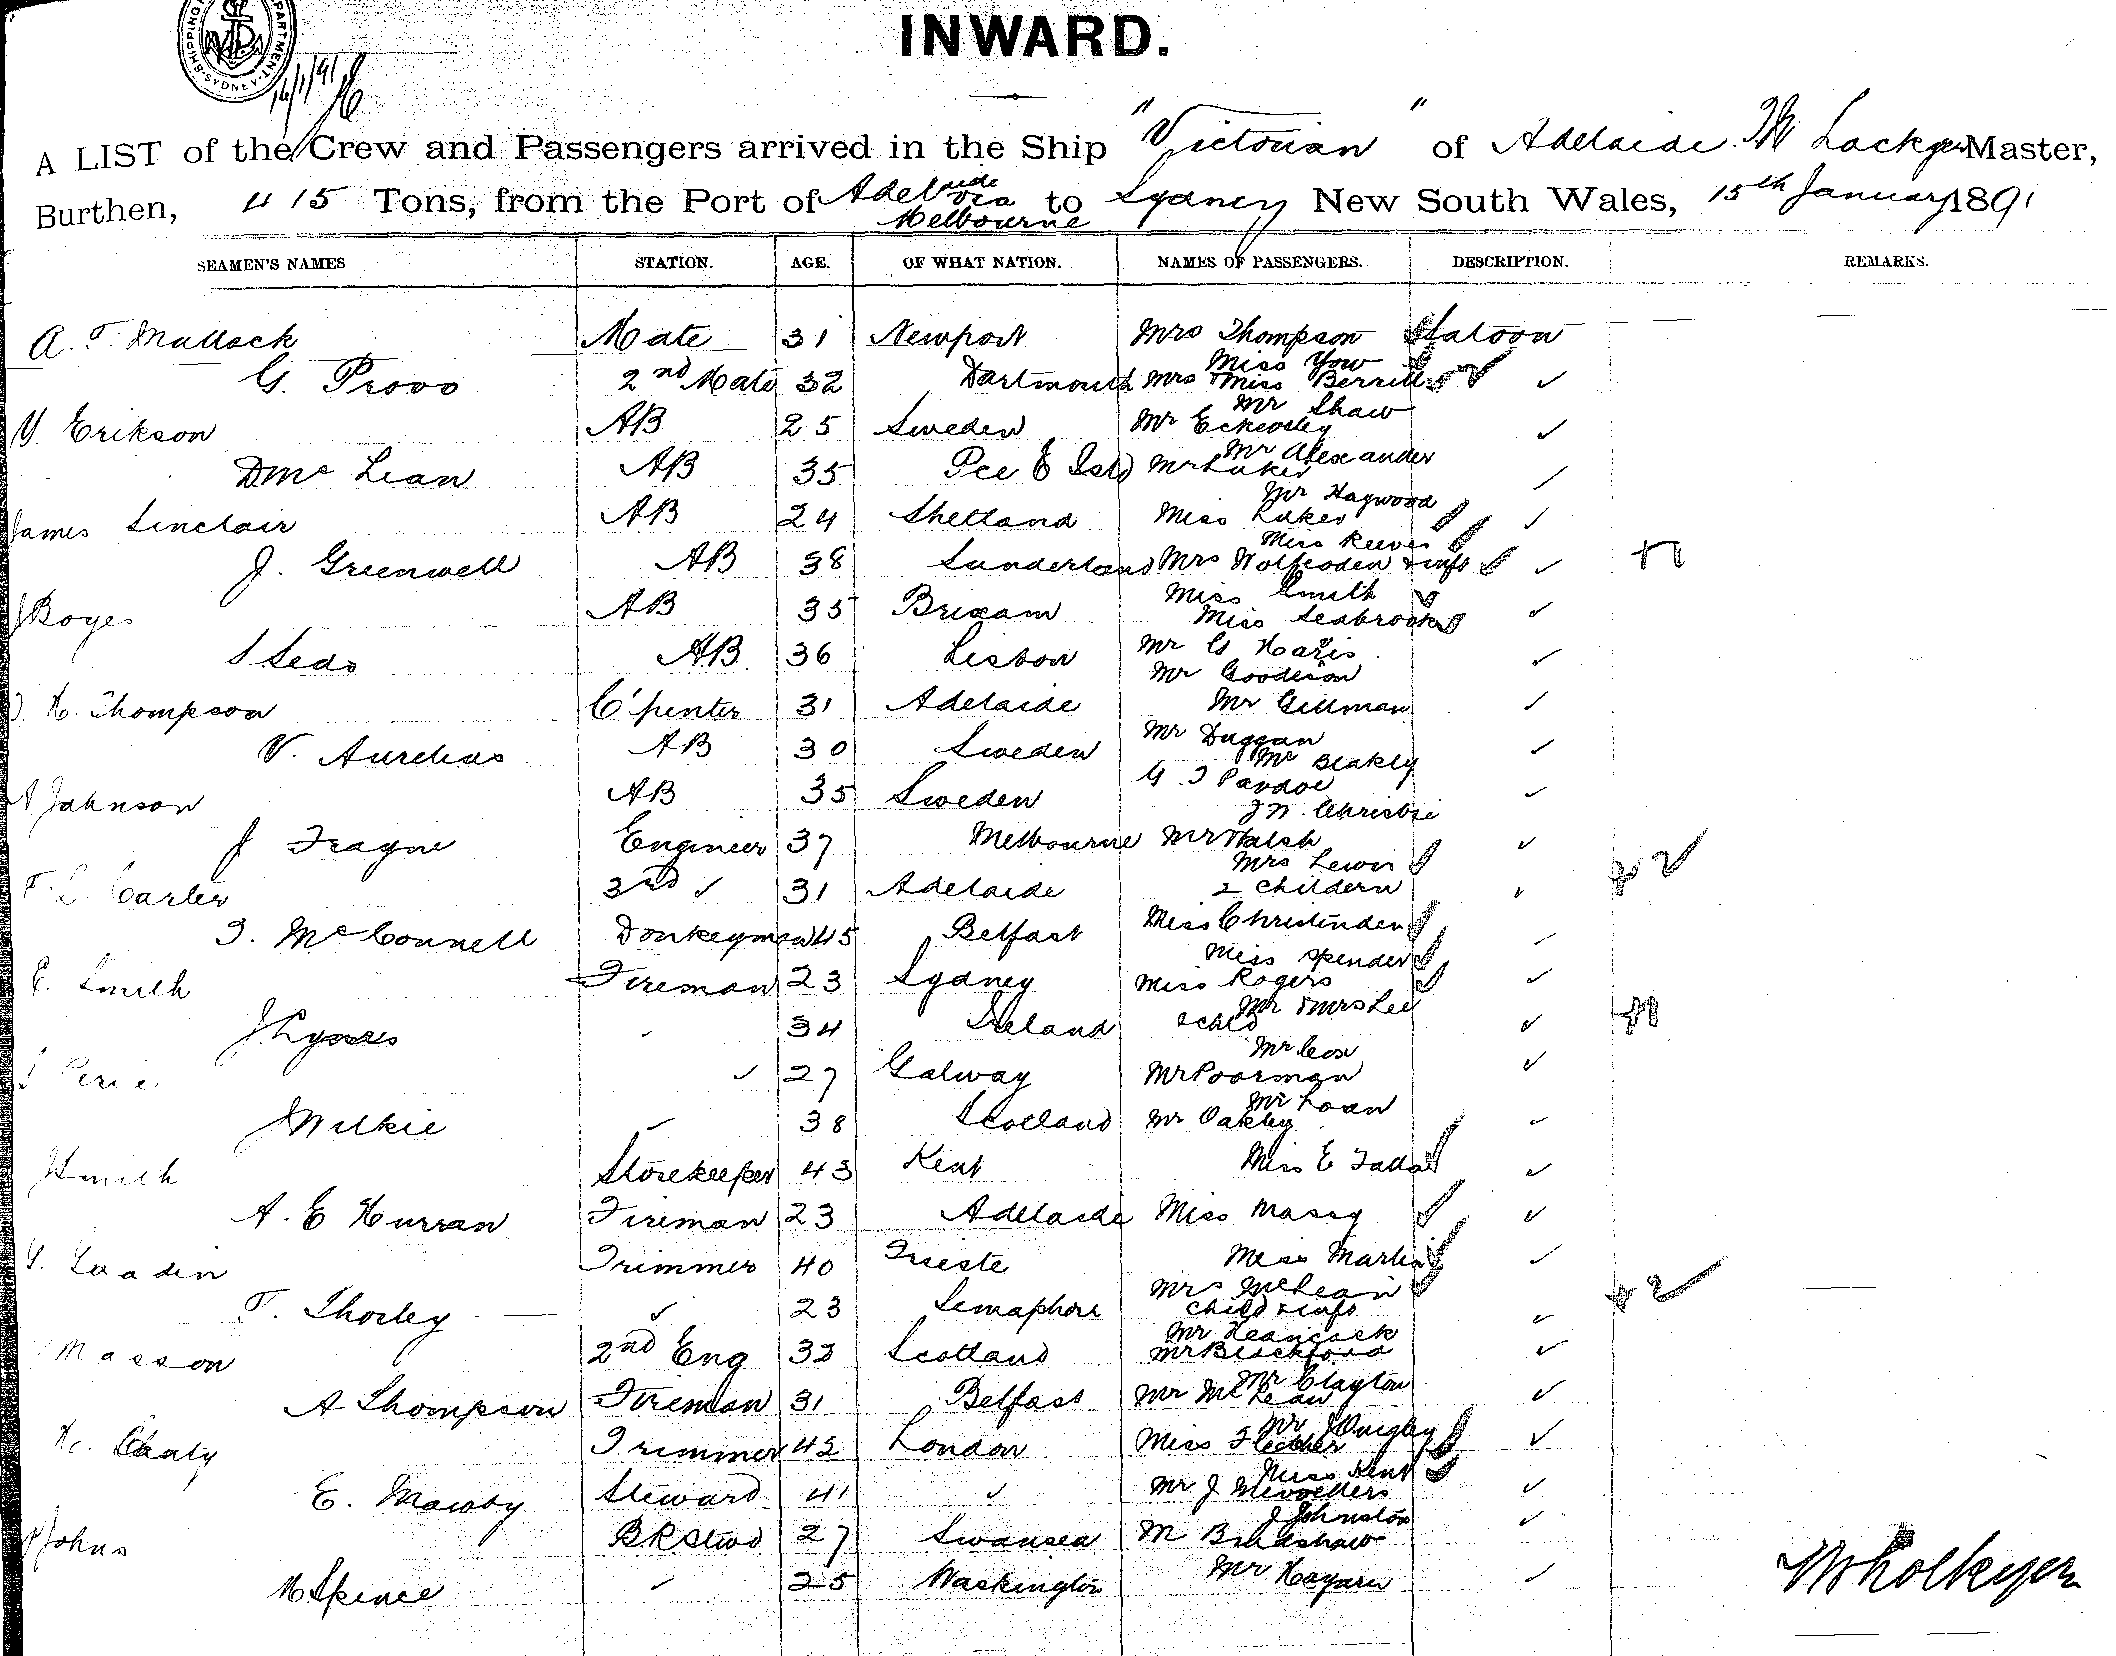 SHIPPING DEPARTMENT SYDNEY
INWARD.
16/1/91
A LIST of the Crew and Passengers arrived in the Ship "Victorian" of Adelaide Master,
Burthen, 415 Tons, from the Port of Adelaide via Melbourne to Sydney New South Wales, 15th January 1891
SEAMEN'S NAMES STATION. AGE. OF WHAT NATION. NAMES OF PASSENGERS. DESCRIPTION. REMARKS.
A. T. Mullock Mate 31 Newport Mrs Thompson Saloon
Miss Yow
G. Provo 2nd Mate 32 Dartmouth Mrs & Miss Berrill
Mr Shaw
Erikson AB 25 Sweden Mr Eckersley
Mr Alexander
D McLean AB 35 Pce E Isld Mr Luker
Mr Haywood
James Sinclair AB 24 Shetland Miss Luker
Miss Reeves
J. Greenwell AB 38 Sunderland Mrs & inf
Miss Smith
J Boyes AB 35 Brixam Miss Seabrook
Mr G Haris
AB 36 Lisbon Mr Goodeson
H. Thompson C'penter 31 Adelaide Mr Gillman
Mr Duggan
V. Aurelius AB 30 Sweden Mr Blakly
G T Pardoe
A Johnson AB 35 Sweden J N. Christie
J Trayne Engineer 37 Melbourne Mr Walsh
Mrs Lewis
T. L. Carter 3rd ✓ 31 Adelaide 2 Childern
McConnell Donkeyman 45 Belfast Miss Christinden
Miss Spender
E. Smith Fireman 23 Sydney Miss Rogers
Mr & Mrs Lee
J. Lynas 34 Ireland & chld
Mr Cox
27 Galway Mr Poorman
Mr Loan
Wilkie 38 Scotland Mr Oakley
Smith Storekeeper 43 Kent Miss E
A. E Hurran Fireman 23 Adelaide Miss Massy
Trimmer 40 Trieste Miss Martin
Mrs McLean
T. Thorley ✓ 23 Semaphore Child & inf
Mr Heancock
Masson 2nd Eng 33 Scotland Mr Blackford
Mr Clayton
A Thompson Fireman 31 Belfast Mr McLean
Mr J Quigley
Trimmer 42 London Miss Fletcher
Miss Kent
E. Mawby Steward 41 ✓ Mr J
J Johnston
Johns BR Stwd 27 Swansea M Bradshaw
M Spence 25 Washington Mr